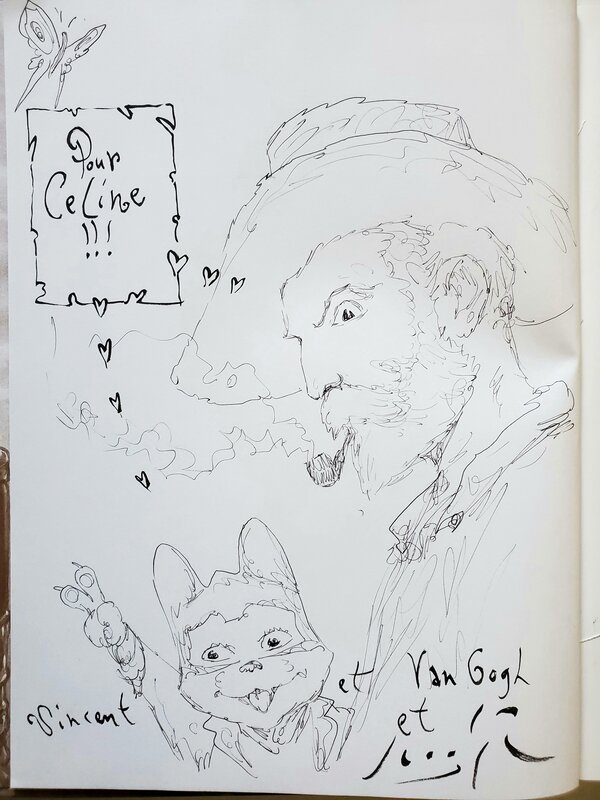 Pour
Celine
!!!
Vincent et Van Gogh
et